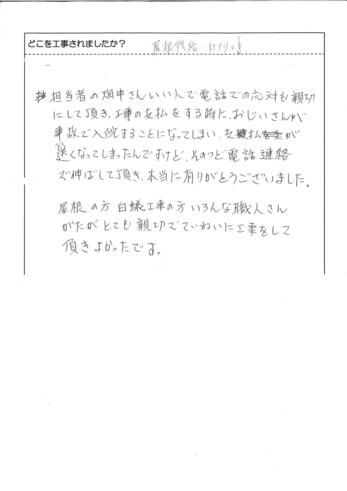 どこを工事されましたか？ 屋根修繕・白アリ
担当者の畑中さんいい人で電話での応対も親切
にして頂き、工事の支払をする時に、おじいさんが
事故で入院することになってしまい、支払が
遅くなってしまったんですけど、そのつど電話連絡
で伸ばして頂き、本当に有りがとうございました。
屋根の方 白蟻工事の方いろんな職人さん
がたがとても親切でていねいに工事をして
頂きよかったです。